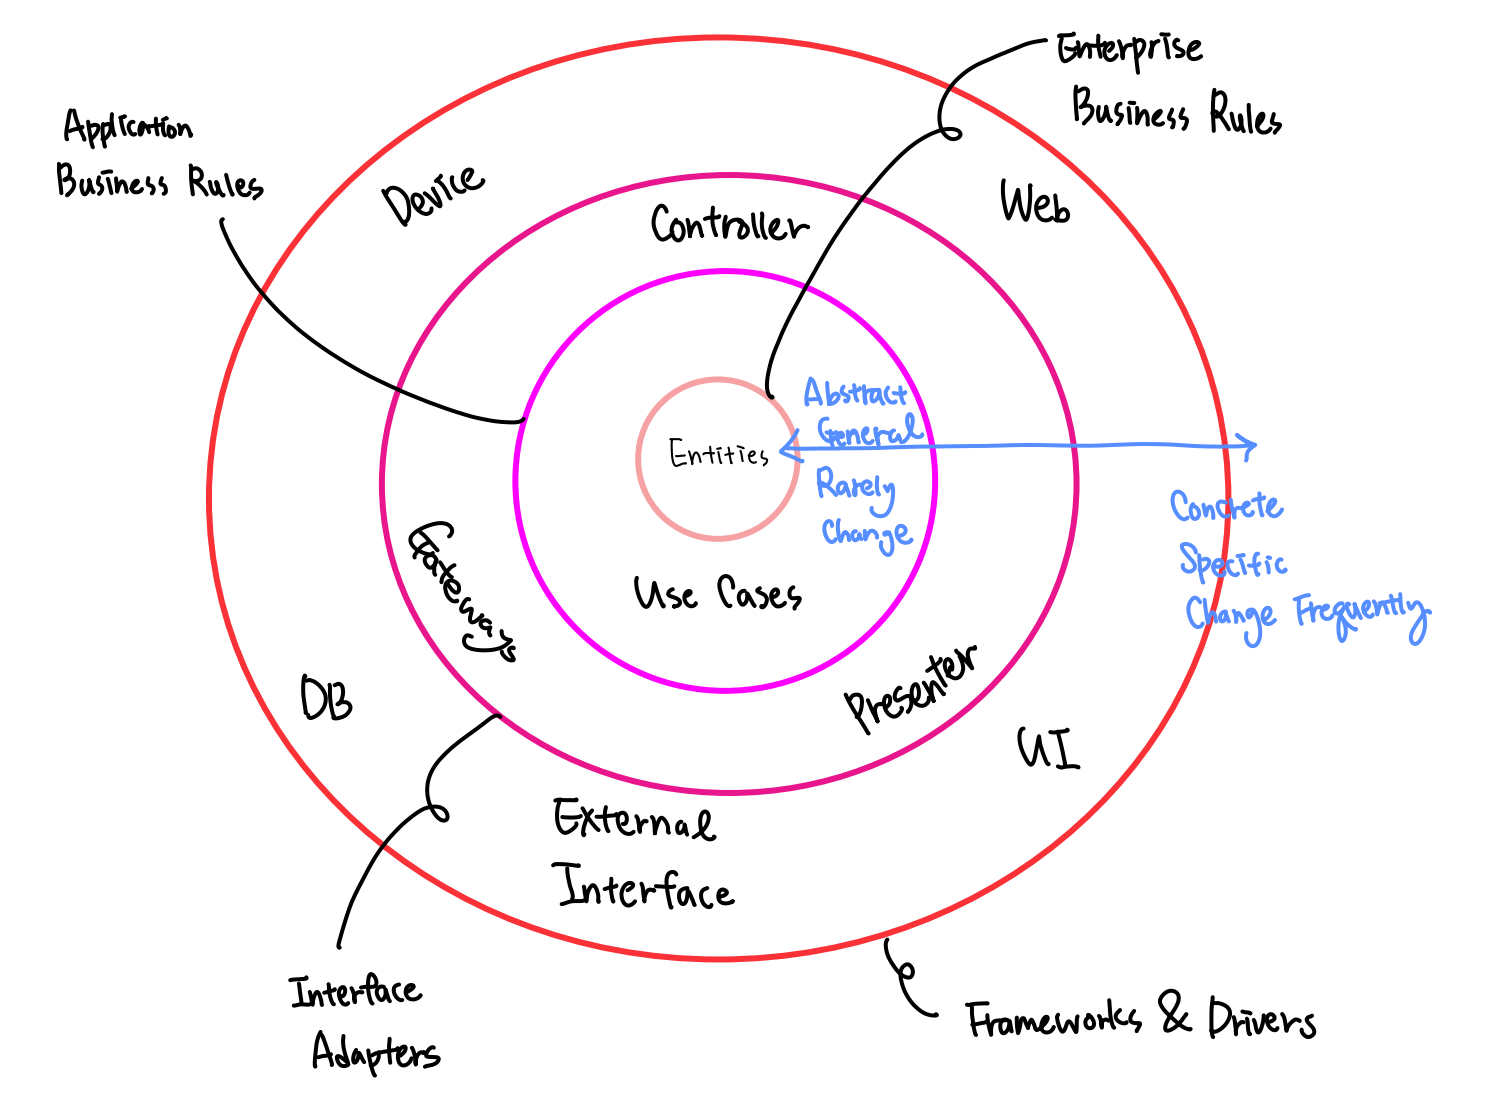 Enterprise
Business Rules
Application
Business Rules
Device
Web
Controller
Abstract
General
Entities
Rarely
Change
Concrete
Specific
Change Frequently
Gateways
Use Cases
Presenter
DB
UI
External
Interface
Interface
Adapters
Frameworks & Drivers